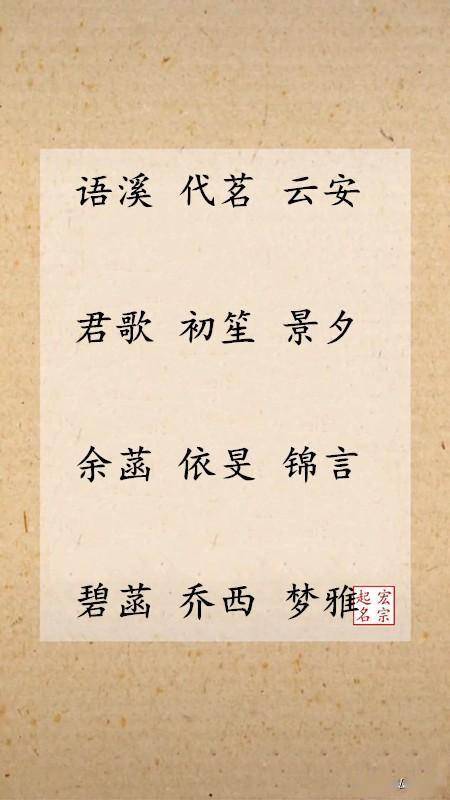 语溪 代茗 云安
君歌 初笙 景夕
余菡 依旻 锦言
碧菡 乔西 梦雅
宏宗
起名